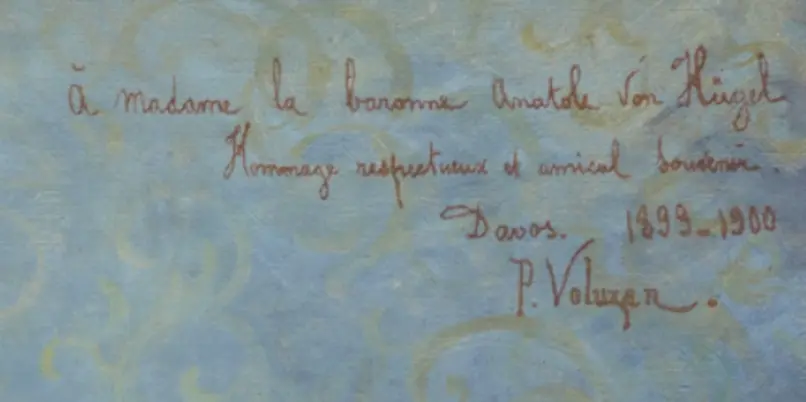 À madame la baronne Anatole Von Hügel
Hommage respectueux et amical souvenir.
Davos. 1899-1900
P. Voluzan.